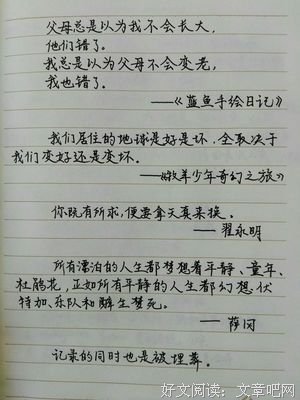 父母总是以为我不会长大，
他们错了。
我总是以为父母不会变老，
我也错了。
——《蓝鱼手绘日记》
我们居住的地球是好是坏，全取决于
我们变好还是变坏。
——《牧羊少年奇幻之旅》
你既有所求，便要拿天真来换。
——翟永明
所有漂泊的人生都梦想着平静、童年、
杜鹃花，正如所有平静的人生都幻想伏
特加、乐队和醉生梦死。
——萨冈
记录的同时也是被埋葬。
好文阅读：文章吧网